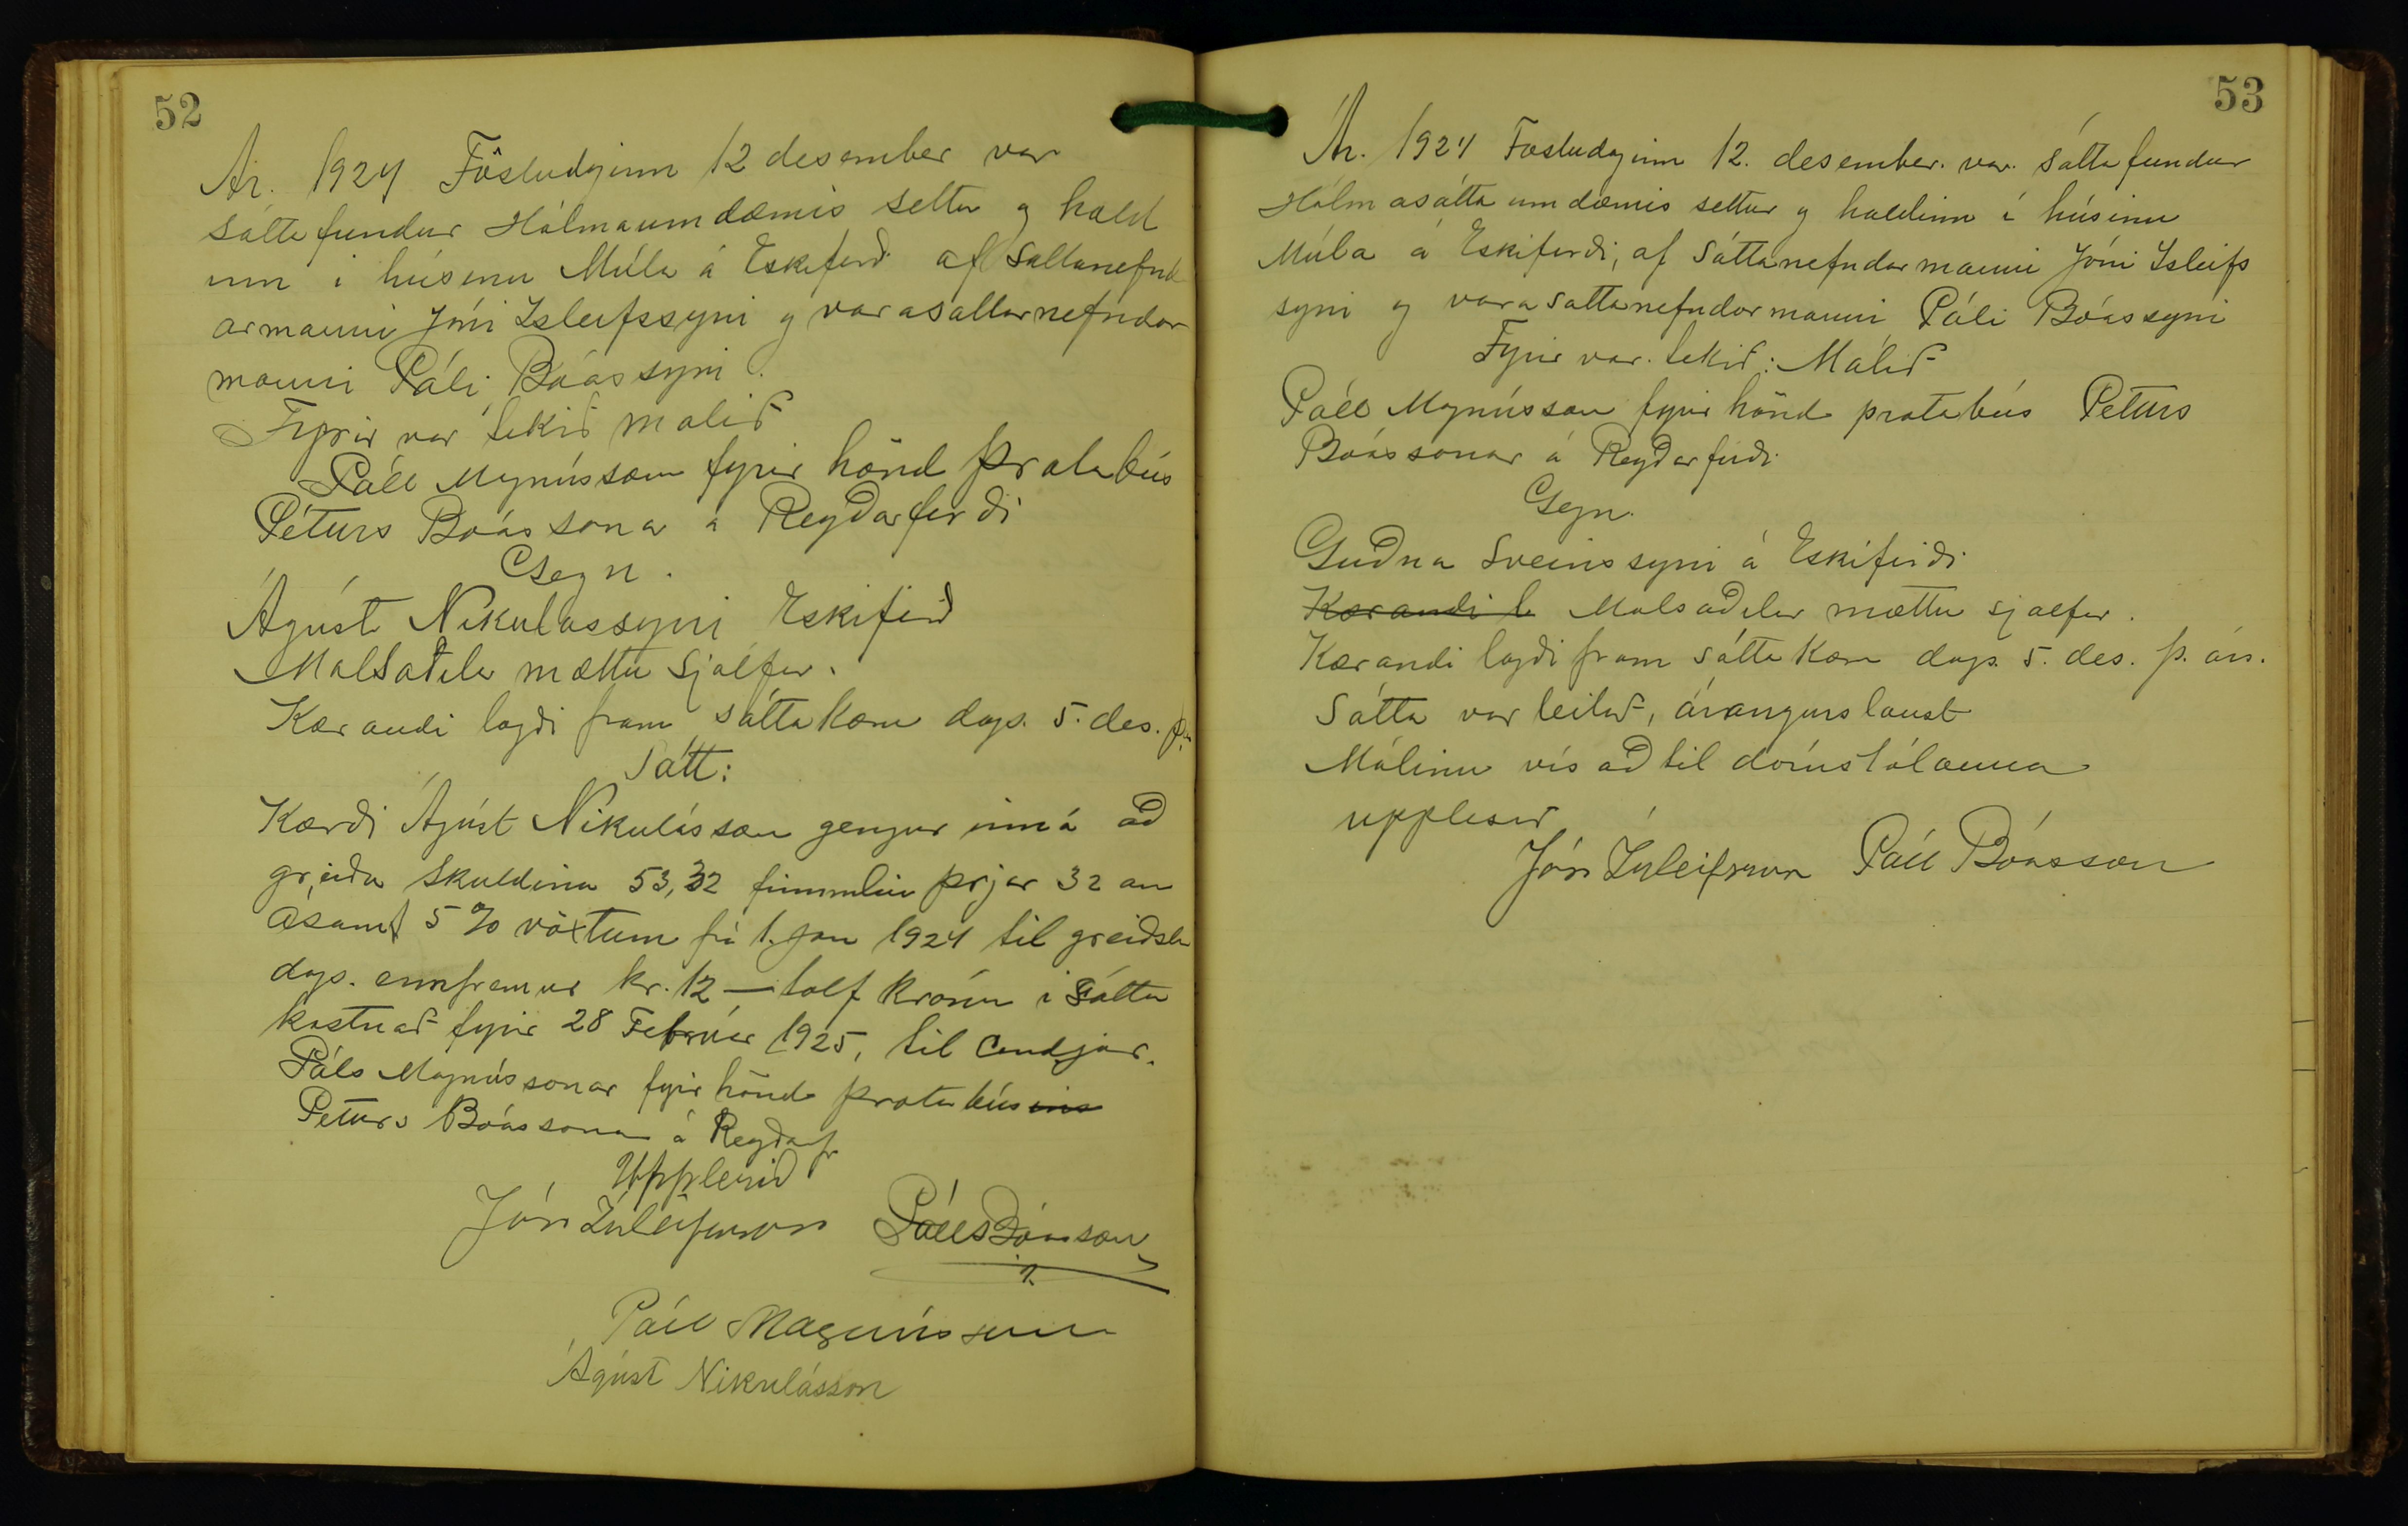 52
Ár. 1924 Föstudginn 12 desember var
sáttafundur Hólmaumdæmis settur og hald
inn i húsinu Múla á Eskifirði af sáttanefnd
armanni Jóni Isleifssyni og varasáttarnefndar
manni Páli Bóassyni.
Fyrir var tekið malið
Páll Magnússon fyrir hönd þrotabús
Péturs Bóassonar á Reyðarfirði
Gegn.
Ágúst Nikulássyni Eskifirð
Malsaðilar mættu sjálfir.
Kærandi lagði fram sáttakæru dags. 5. des. þ.á
Sátt:
Kærði Ágúst Nikulásson gengur inná að
greiða skuldina 53,32 fimmtiu þrjár 32 au
ásamt 5% vöxtum frá 1. jan 1924 til greiðslu
dags. ennfremur kr. 12 — tolf krónur i Sátta
kostnað fyrir 28 Febrúar 1925, til
Páls Magnússonar fyrir hönd þrotabúsins
Péturs Bóassonar á Reyðarf
Upplesið
Jón Ísleifsson Páll Bóasson
Páll Magnússon
Ágúst Nikulásson
53
Ár. 1924 Föstudaginn 12. desember. var. sáttafundur
Hólmasáttaumdæmis settur og haldinn í húsinu
Múla á Eskifirði, af sáttanefndarmanni Jóni Isleifs
syni og varasattanefndarmanni Páli Bóassyni
Fyrir var. tekið: Málið
Páll Magnússon fyrir hönd þrotabús Péturs
Bóassonar á Reyðarfirði
Gegn.
Guðna Sveinssyni á Eskifirði
Kærandi l Malsaðilar mættu sjálfir.
Kærandi lagði fram sáttakæru dags. 5. des. þ. árs.
Sátta var leitað, árangurslaust
Málinu vísað til dómstólanna
upplesið
Jón Ísleifsson Páll Bóasson